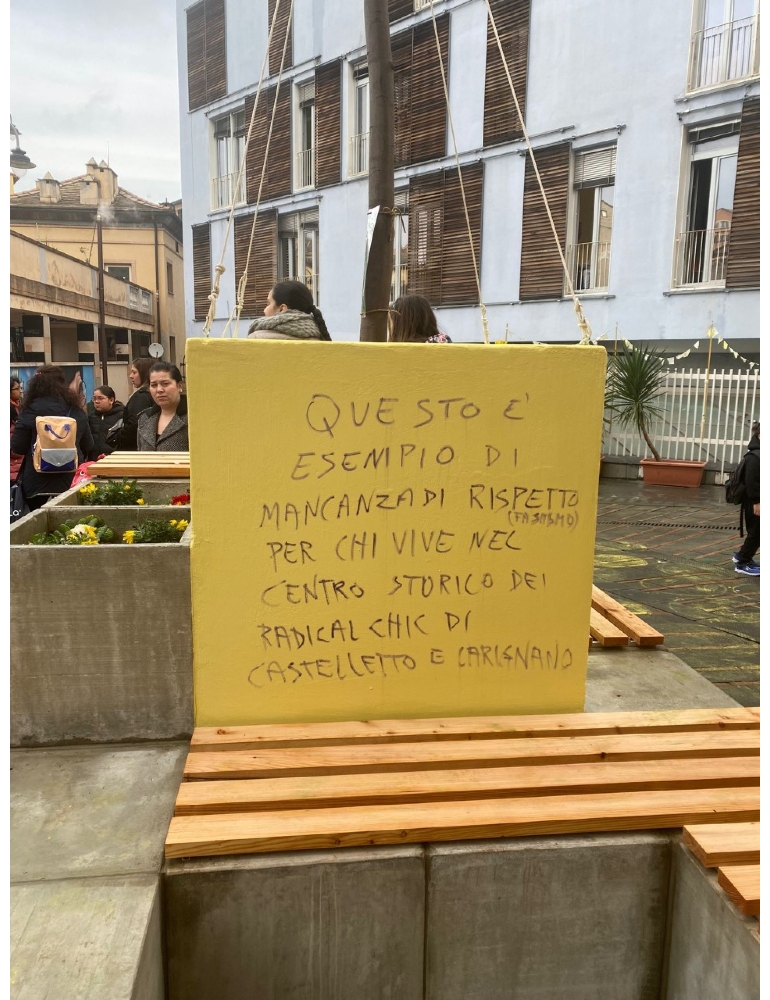 QUESTO E'
ESEMPIO DI
MANCANZA DI RISPETTO
(FASCISMO)
PER CHI VIVE NEL
CENTRO STORICO DEI
RADICAL CHIC DI
CASTELLETTO E CARIGNANO